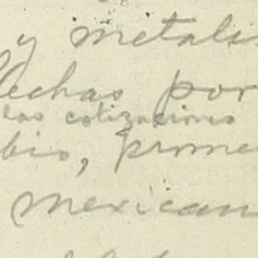 y metalis
lechas por
las cotizaciones
bio, prome
mexican